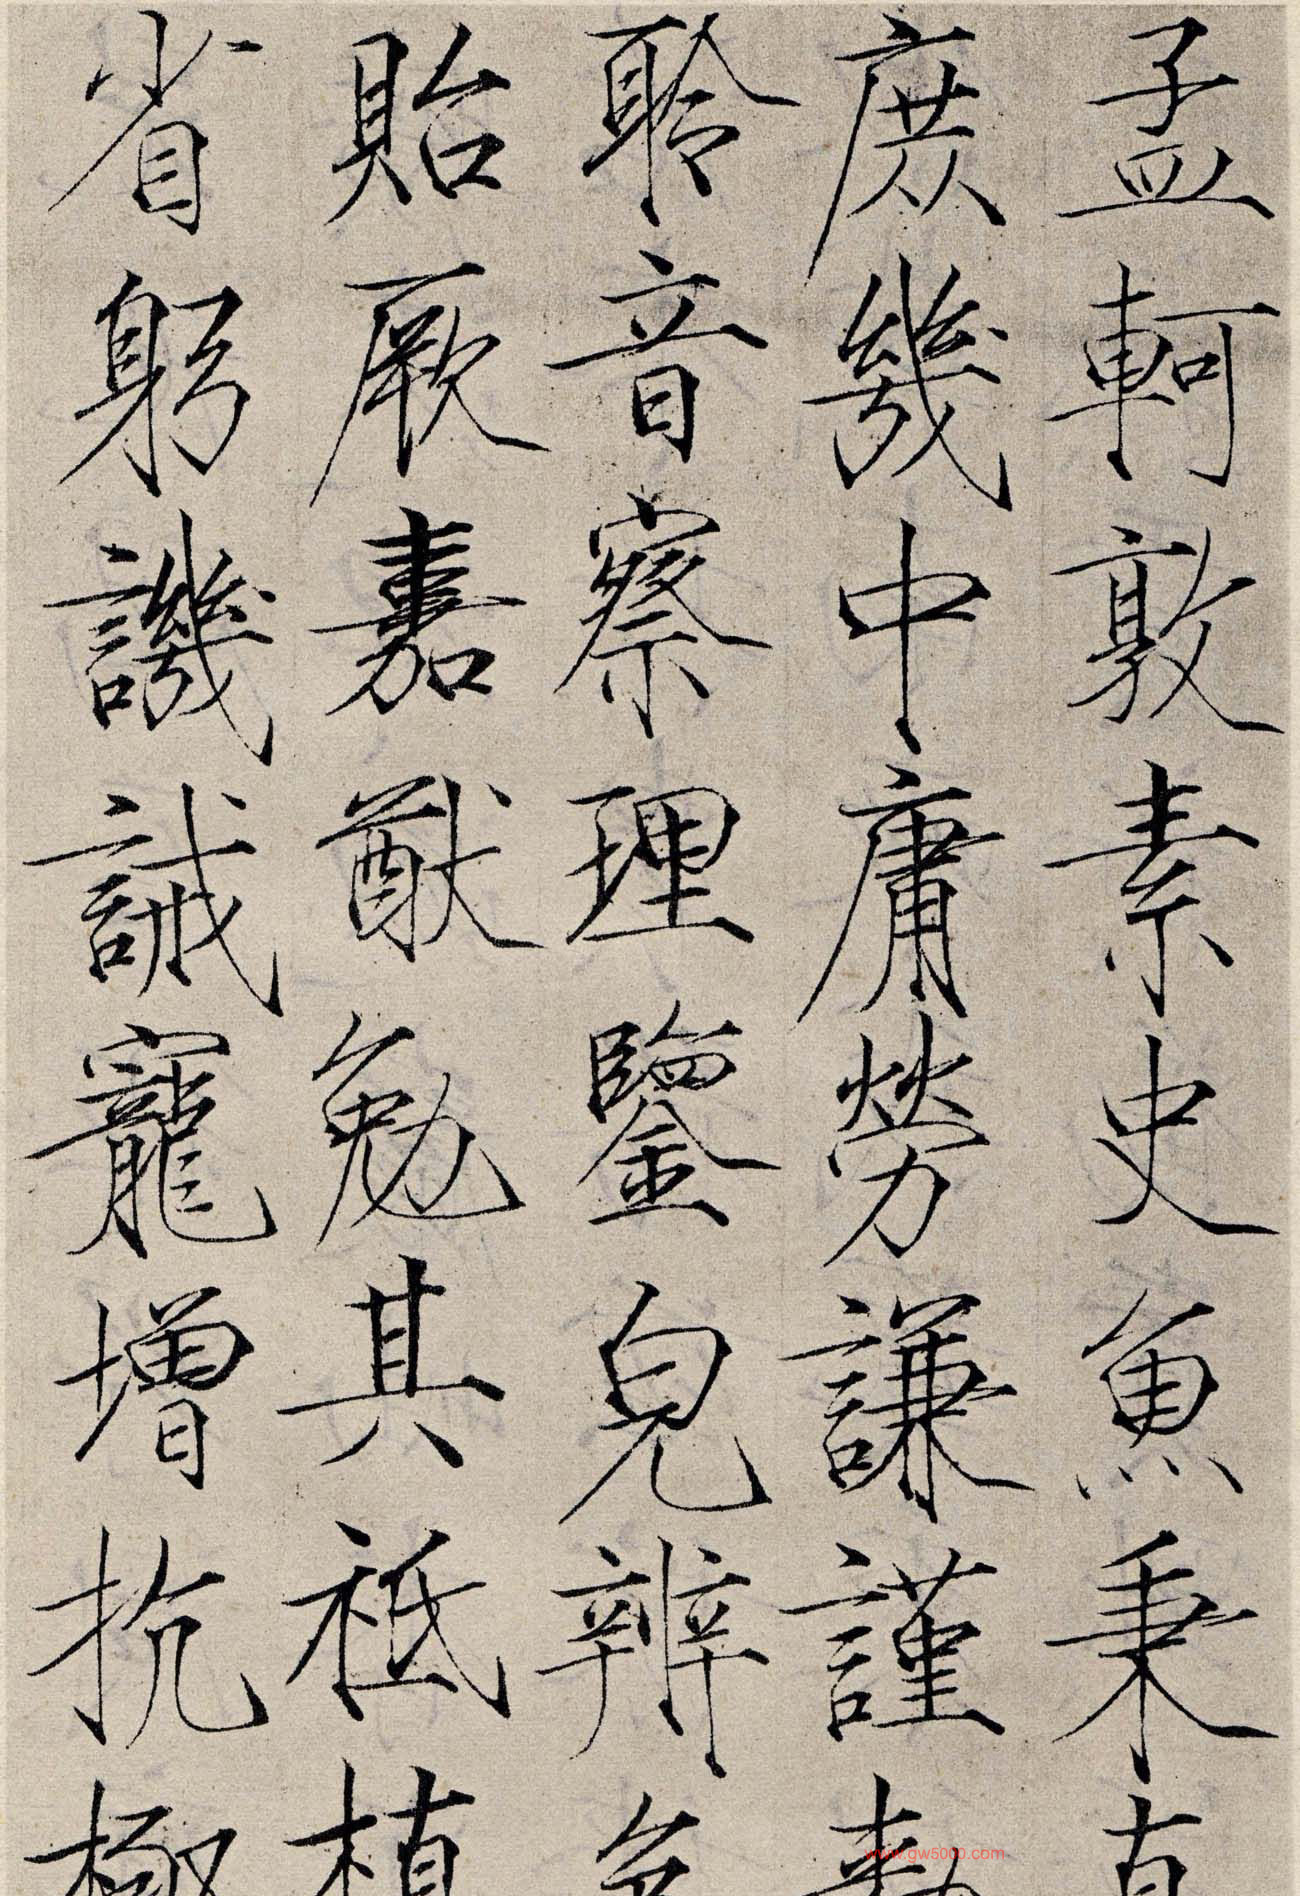 孟軻敦素史魚秉直
庶幾中庸勞謙謹勑
聆音察理鑒皃辨色
貽厥嘉猷勉其祗植
省躬譏誡寵增抗極
www.gw5000.com